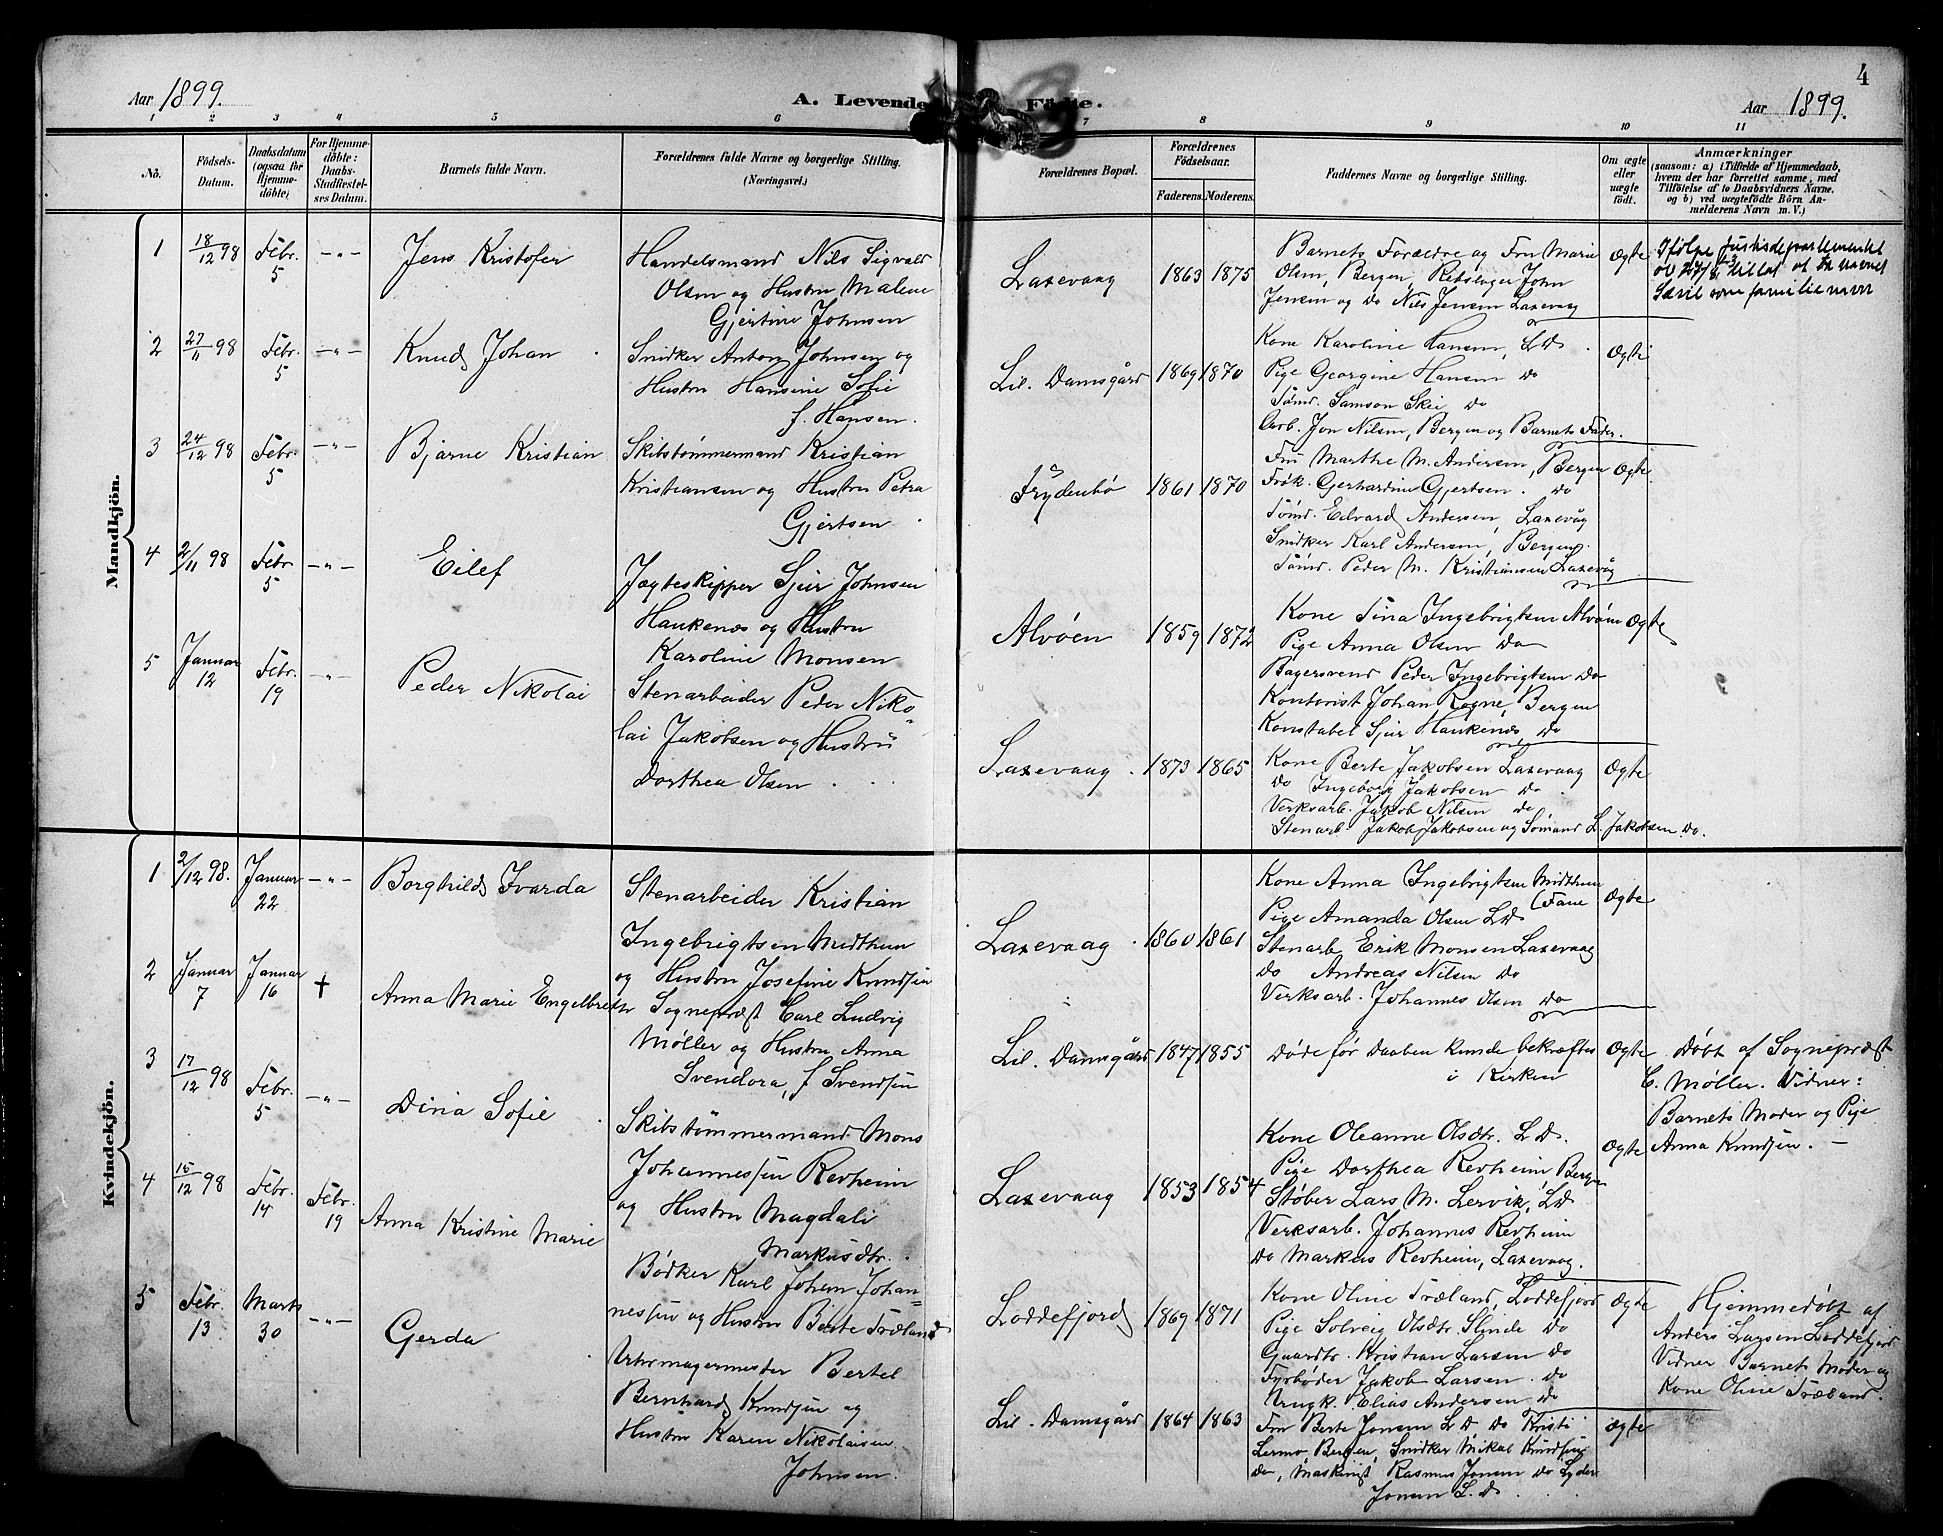 4
Aar 1899.
A. Levende Fødte.
Aar 1899.
1 2 3 4 5 6 7 8 9 10 11
No.
Födsels-Datum.
Daabsdatum (ogsaa for Hjemmedöbte)
For Hjemmedöbte: Daabs-Stadfæstelses Datum.
Barnets fulde Navn.
Forældrenes fulde Navne og borgerlige Stilling.
(Næringsvei.)
Forældrenes Bopæl.
Forældrenes Födselsaar.
Faderens. Moderens.
Faddernes Navne og borgerlige Stilling.
Om ægte eller uægte födt.
Anmærkninger
(saasom: a) i Tilfælde af Hjemmedaab,
hvem der har forrettet samme, med
Tilföielse af to Daabsvidners Navne.
og b) ved uægtefödte Börn An-
melderens Navn m. V.)
Mandkjön.
1 18/12 98 Febr. 5 -"- Jens Kristofer
Handelsmand Nils Sigvald
Olsen og Hustru Malene
Gjertine Johnsen
Laxevaag 1863 1875
Barnets Forældre og Fru Marie
Olsen, Bergen, Rebslager John
Jensen og Do Nils Jensen Laxevaag
Ægte
Ifølge Justisdepartementet
tillat at ta navnet
som familienavn
2 27/11 98 Febr. 5 -"- Knud Johan
Snidker Anton Johnsen og
Hustru Hansine Sofie
f. Hansen.
Lil. Damsgård 1869 1870
Kone Karoline Hansen, L D.
Pige Georgine Hansen Do
Tømd. Samson Skei Do
Arb. Jon Nilsen, Bergen og Barnets Fader.
Ægte
3 24/12 98 Febr. 5 -"- Bjarne Kristian
Skibstømmermand Kristian
Kristiansen og Hustru Petra
Gjertsen
Frydenbö 1861 1870
Fru Marthe M. Andersen, Bergen
Frøk. Gerhardine Gjertsen. Do
Tømd. Edvard Andersen, Laxevåg
Snidker Karl Andersen, Bergen.
Tømd. Peder M. Kristiansen Laxevåg
Ægte
4 2/11 98 Febr. 5 -"- Eilef
Jægteskipper Sjur Johnsen
Haukenæs og Hustru
Karoline Monsen
Alvöen 1859 1872
Kone Tina Ingebrigtsen Alvöen
Pige Anna Olsen Do
Bagersvend Peder Ingebrigtsen Do
Kontorist Johan Rogne, Bergen
Konstabel Sjur Haukenæs, Do
Ægte
5 Januar 12 Febr. 19 -"- Peder Nikolai
Stenarbeider Peder Niko-
lai Jakobsen og Hustru
Dorthea Olsen
Laxevaag 1873 1865
Kone Berte Jakobsen Laxevaag
Do Ingeborg Jakobsen Do
Verksarb. Jakob Nilsen Do
Stenarb. Jakob Jakobsen og Sömand L. Jakobsen Do.
Ægte
Kvindekjön.
1 2/12 98. Januar 22 -"- Borghild Ivarda
Stenarbeider Kristian
Ingebrigtsen Midthun
og Hustru Josefine Knudsen
Laxevaag 1860 1861
Kone Anna Ingebrigtsen Midthun
(Fane
Pige Amanda Olsen L D
Stenarb Erik Monsen Laxevaag
Do Andreas Nilsen Do
Verksarb. Johannes Olsen Do
Ægte
2 Januar 7 Januar 16 † Anna Marie Engelbrekte
Sognepræst Carl Ludvig
Møller og Hustru Anna
Svendora, f Svendsen
Lil. Damsgård 1847 1855
Døde før Daaben kunde bekræftes
i Kirken
Ægte
Døbt af Sognepræst
C. Møller. Vidner:
Barnets Moder og Pige
Anna Knudsen. —
3 17/12 98 Febr. 5 -"- Dina Sofie
Skibstømmermand Mons
Johannessen Revheim
og Hustru Magdali
Markusdtr.
Laxevaag 1853 1854
Kone Oleanne Olsdtr. L D.
Pige Dorthea Revheim Bergen
Støber Lars M. Lervik, L D
Verksarb. Johannes Revheim
Do Markus Revheim, Laxevaag.
Ægte
4 15/12 98 Febr. 14 Febr. 19 Anna Kristine Marie
Bødker Karl Johan Johan-
nessen og Hustru Berte Træland
Loddefjord 1869 1871
Kone Oline Træland, Loddefjord
Pige Solveig Olsdtr. Slinde Do
Gaardbr. Kristian Larsen Do
Fyrbøder Jakob Larsen. Do
Ungk. Elias Andersen Do
Ægte
Hjemmedøbt af
Anders Larsen Loddefjord
Vidner Barnets Moder og
Kone Oline Træland.
5 Febr. 13 Marts 30 -"- Gerda
Urhmagermester Bertel
Bernhard Knudsen og
Hustru Karen Nikolaisen
Johnsen.
Lil. Damsgård 1864 1863
Fru Berte Jonsen L D Do Kristi
Lermo, Bergen, Snidker Mikal Knudsen
Do, Maskinist Rasmus Jonsen Do Lyder
Jonsen L. D.
Ægte